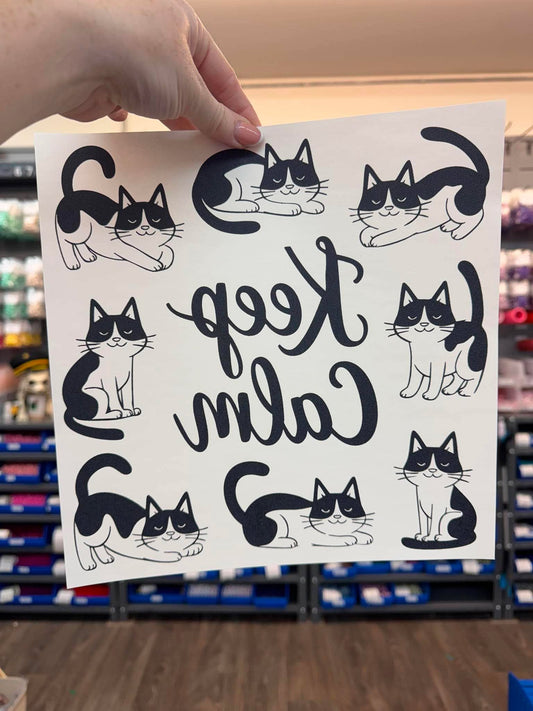 Keep
Calm